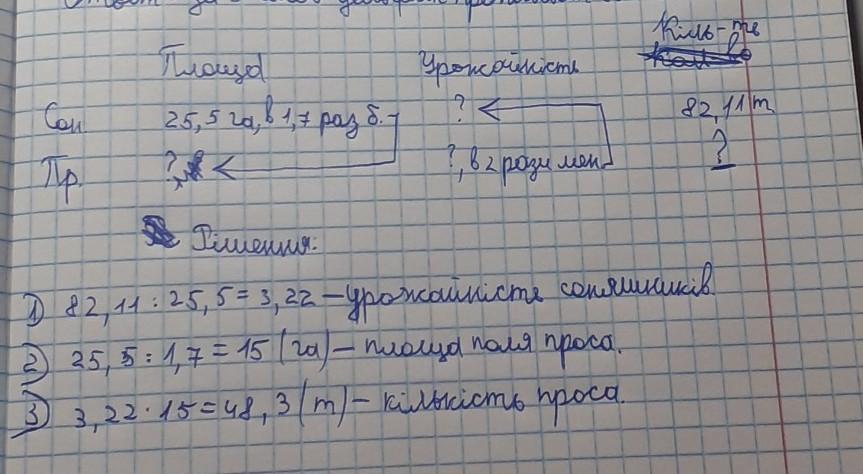 за
Кіль-ть
Площа Урожайність
Сон. 25,5 га, в 1,7 раз б. ? 82,11 т
Пр. ?, ?, в 2 рази мен. ?
Рішення:
1) 82,11 : 25,5 = 3,22 – урожайність соняшників.
2) 25,5 : 1,7 = 15 (га) – площа поля проса.
3) 3,22 · 15 = 48,3 (т) – кількість проса.